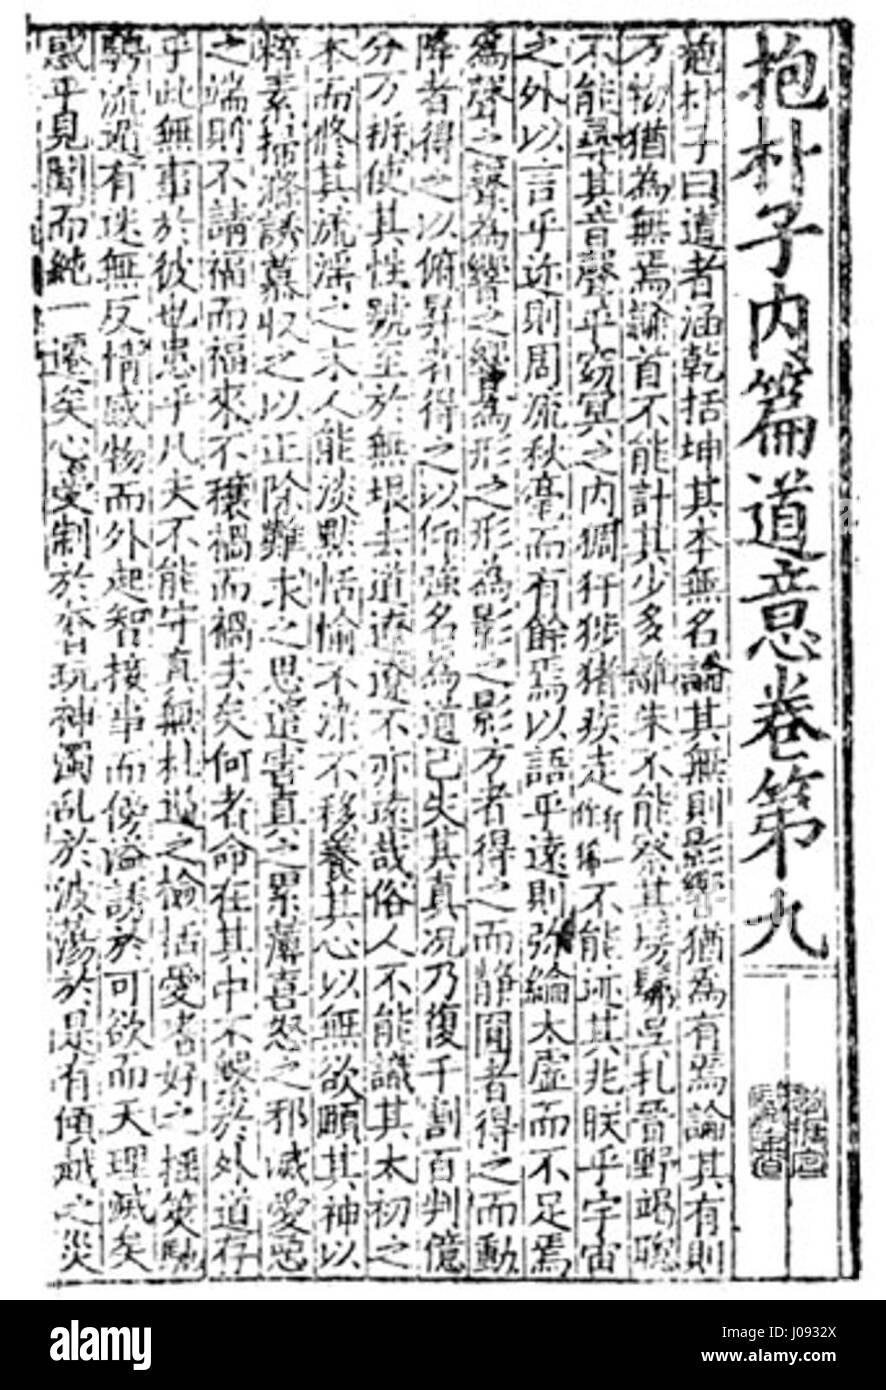 抱朴子内篇道意卷第九
抱朴子曰道者涵乾括坤其本無名論其無則影響猶為有焉論其有則
万物猶為無焉隸首不能計其少多離朱不能察其髣髴吴札晉野竭聰
不能尋其音聲乎窈冥之内猦犽猣猪疾走不能迹其兆朕乎宇宙
之外以言乎迩則周流秋毫而有餘焉以語乎遠則弥綸太虚而不足焉
為聲之聲為響之響為形之形為影之影方者得之而静圓者得之而動
降者得之以俯昇者得之以仰强名為道已失其真况乃復千割百判億
分万析使其姓號至於無垠去道遼遼不亦遠哉俗人不能識其太初之
本而修其流淫之末人能淡默恬愉不染不移養其心以無欲頤其神以
粹素掃滌誘慕収之以正除難求之思遣害真之累薄喜怒之邪滅愛惡
之端則不請福而福來不禳禍而禍去矣何者命在其中不繫於外道存
乎此無事於彼也患乎凡夫不能守真無杜遏之檢括愛嗜好之摇奪馳
騁流遁有迷無反情感物而外起智接事而傍溢誘於可欲而天理滅矣
惑乎見聞而純一遷矣心受制於奢玩神濁乱於波蕩於是有傾越之災
alamy
Image ID: J0932X
www.alamy.com